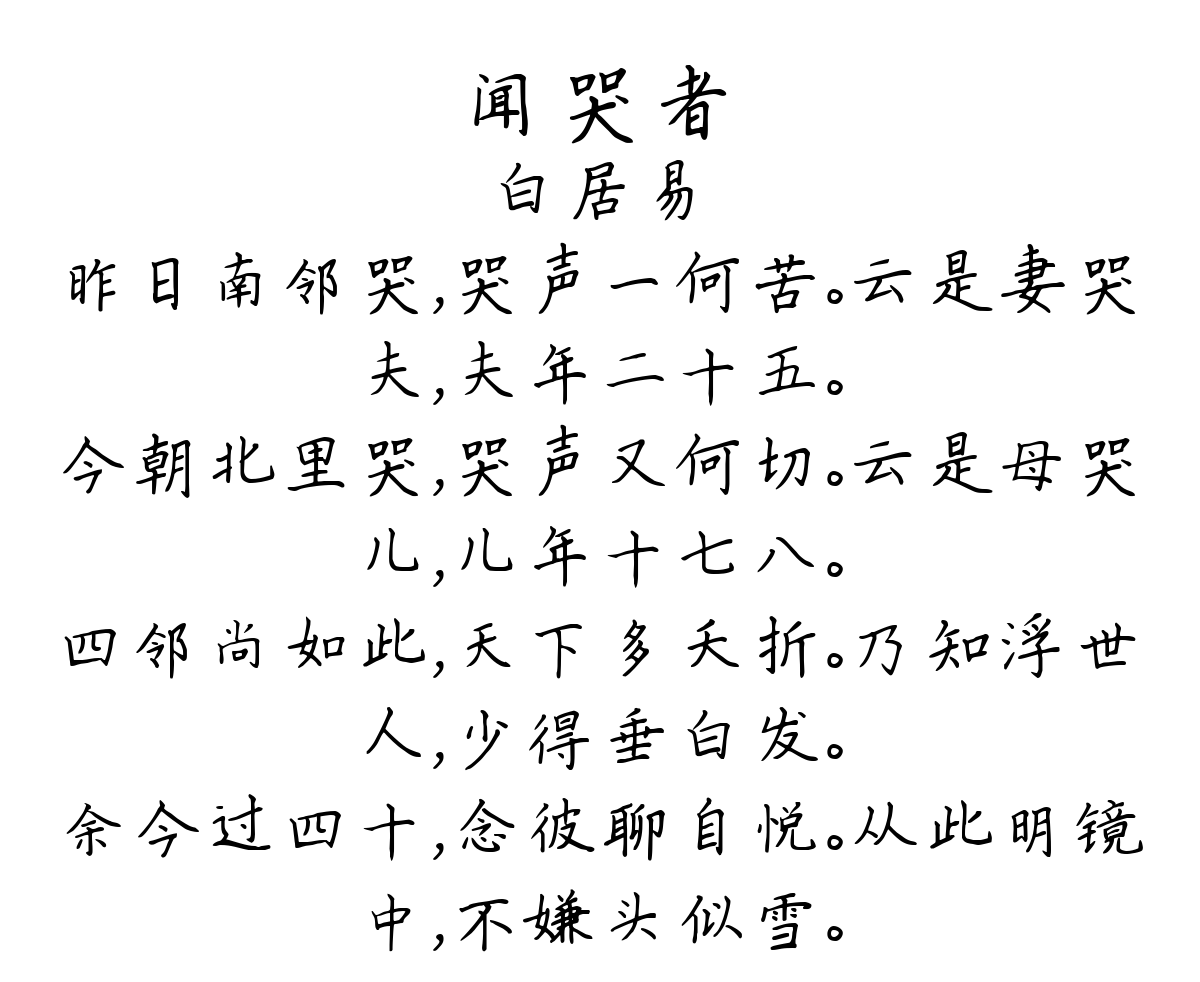 闻哭者
白居易
昨日南邻哭,哭声一何苦。云是妻哭
夫,夫年二十五。
今朝北里哭,哭声又何切。云是母哭
儿,儿年十七八。
四邻尚如此,天下多夭折。乃知浮世
人,少得垂白发。
余今过四十,念彼聊自悦。从此明镜
中,不嫌头似雪。